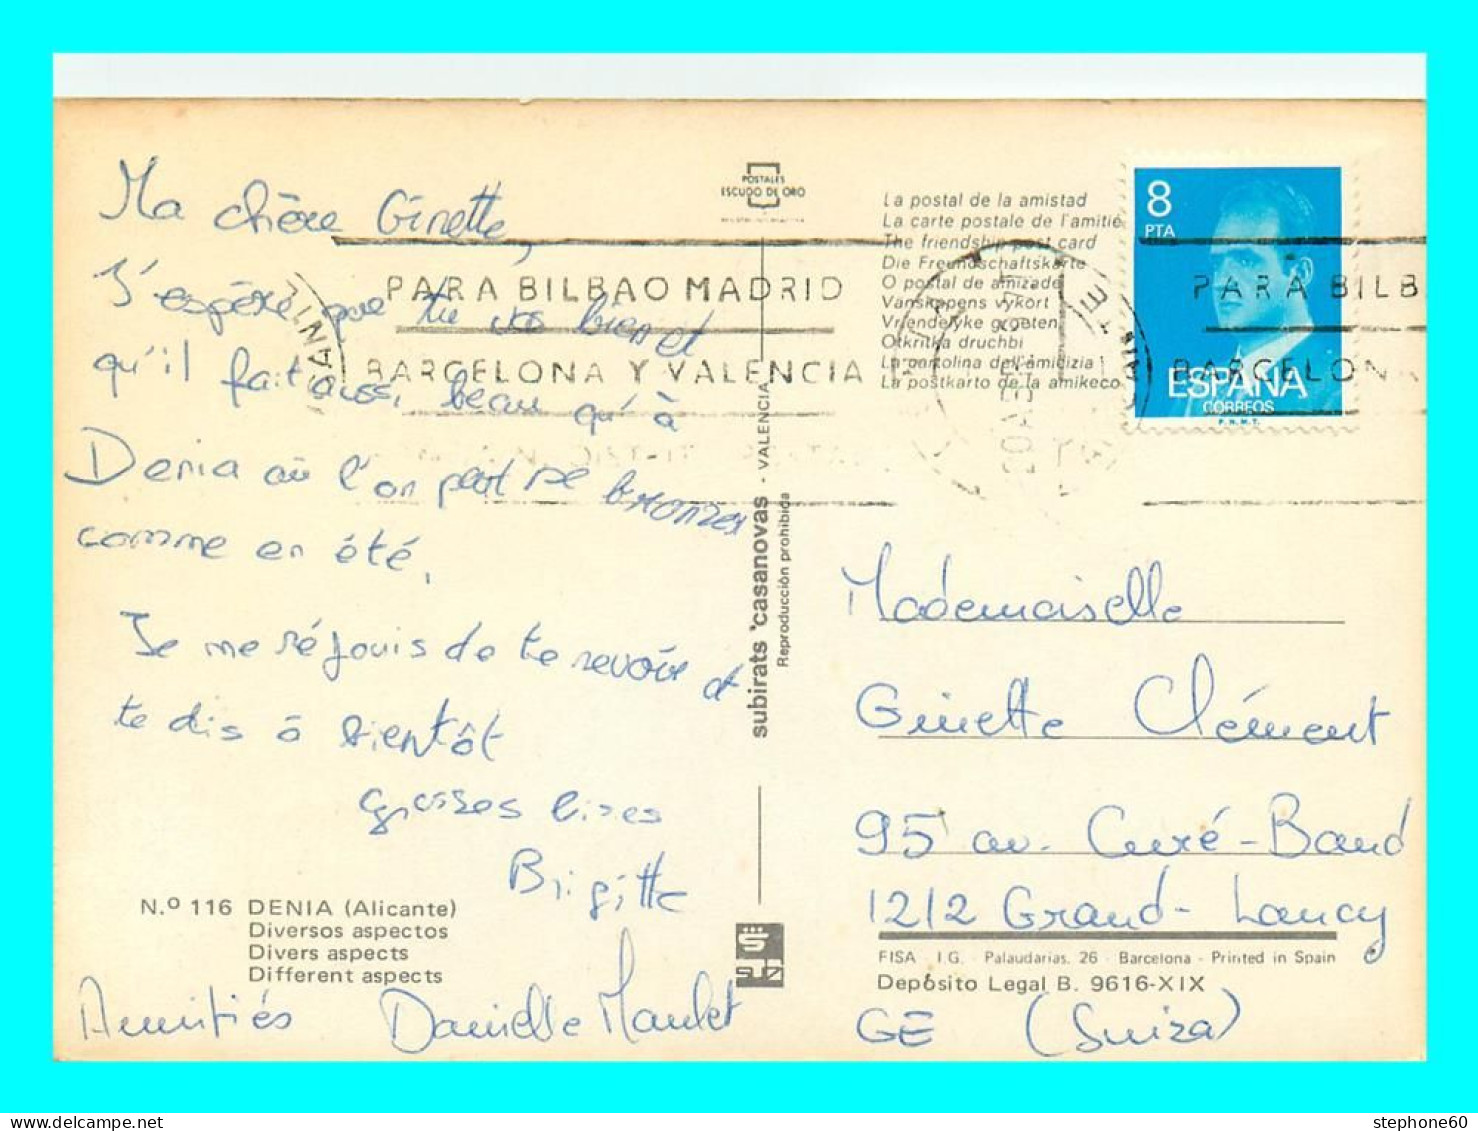 Ma chère Ginette,
J'espère que tu vas bien et
qu'il fait aussi beau qu'à
Denia où l'on peut se bronzer
comme en été.
Je me réjouis de te revoir et
te dis à bientôt
grosses bises
Brigitte
N.º 116 DENIA (Alicante)
Diversos aspectos
Divers aspects
Different aspects
Amitiés Danielle Maulet
POSTALES
ESCUDO DE ORO
subirats casanovas - VALENCIA
Reproducción prohibida
La postal de la amistad
La carte postale de l'amitié
The friendship post card
Die Freundschaftskarte
O postal de amizade
Vanskapens vykort
Vriendelyke groeten
Otkritka druchbi
La cartolina dell'amicizia
La postkarto de la amikeco
8
PTA
ESPAÑA
CORREOS
F.N.M.T.
PARA BILBAO MADRID
BARCELONA Y VALENCIA
PARA BILB
BARCELON
Mademoiselle
Ginette Clément
95 av. Curé-Baud
1212 Grand-Lancy
FISA I.G. - Palaudarias, 26 - Barcelona - Printed in Spain
Depósito Legal B. 9616-XIX
GE (Suiza)
stephone60